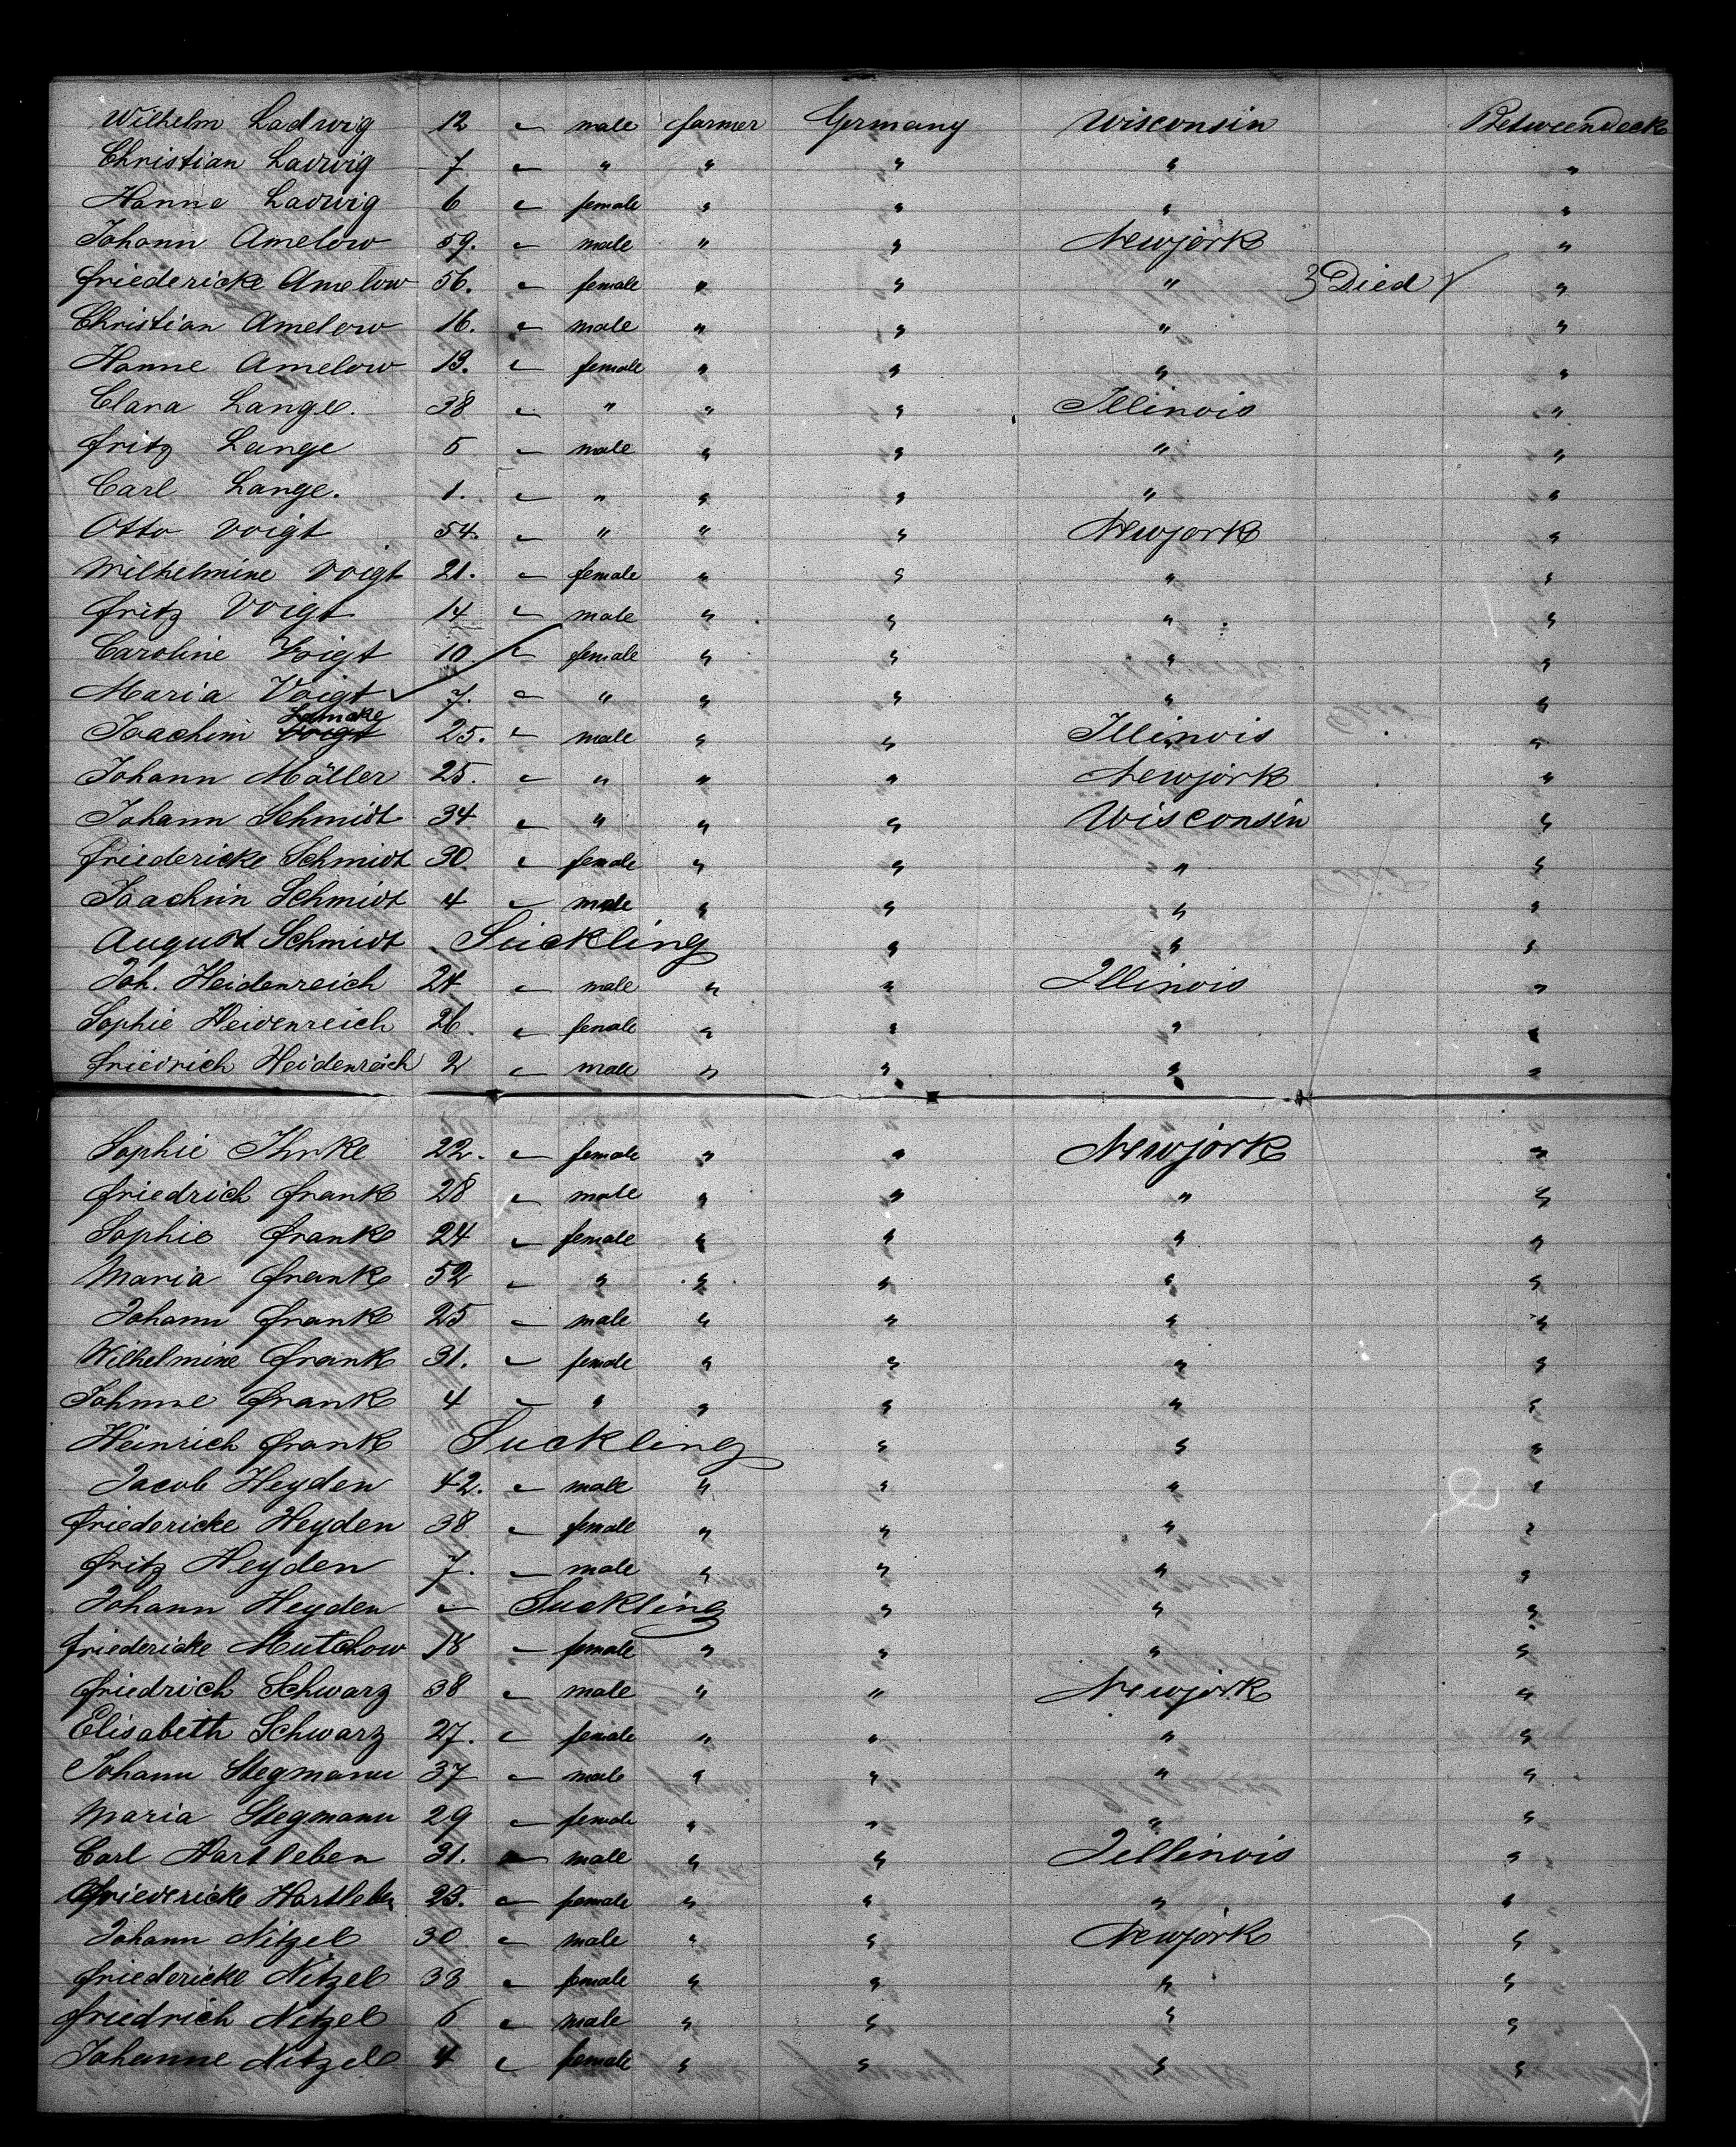 Wilhelm Ladwig 12 " male farmer Germany Wisconsin Betweendeck
Christian Ladwig 7 " " " " " "
Hanne Ladwig 6 " female " " " "
Johann Amelow 59. " male " " Newjork "
friedericke Amelow 56. " female " " " 3 Died "
Christian Amelow 16. " male " " " "
Hanne Amelow 13. " female " " " "
Clara Lange. 38 " " " " Illinois "
fritz Lange 5 " male " " " "
Carl Lange. 1. " " " " " "
Otto Voigt 54. " " " " Newjork "
Wilhelmine Voigt 21. " female " " " "
fritz Voigt 14 " male " " " "
Caroline Voigt 10 " female " " " "
Maria Voigt 7. " " " " " "
Joachim Voigt 25. " male " " Illinois "
Johann Möller 25. " " " " Newjork "
Johann Schmidt 34 " " " " Wisconsin "
friedericke Schmidt 30 " female " " " "
Joachim Schmidt 4 " male " " " "
August Schmidt Suckling " " "
Joh. Heidenreich 24 " male " " Illinois "
Sophie Heidenreich 26. " female " " " "
friedrich Heidenreich 2 " male " " " "
Sophie Ihrke 22. " female " " Newjork "
friedrich frank 28 " male " " " "
Sophie frank 24 " female " " " "
Maria frank 52 " " " " " "
Johann frank 25 " male " " " "
Wilhelmine frank 31. " female " " " "
frank 4 " " " " " "
Heinrich frank Suckling " " "
Jacob Heyden 42. " male " " " "
friedericke Heyden 38 " female " " " "
fritz Heyden 7. " male " " " "
Johann Heyden " Suckling " " "
friedericke Mutchow 18 " female " " " "
friedrich Schwarz 38 " male " " Newjork "
Elisabeth Schwarz 27. " female " " " "
Johann Stegmann 37 " male " " " "
Maria Stegmann 29 " female " " " "
Carl Hartleben 31. " male " " Iellinois "
friedericke Hartleben 23. " female " " " "
Johann Nitzel 30 " male " " Newjork "
friedericke Nitzel 33 " female " " " "
friedrich Nitzel 6 " male " " " "
Johanne Nitzel 4 " female " " " "